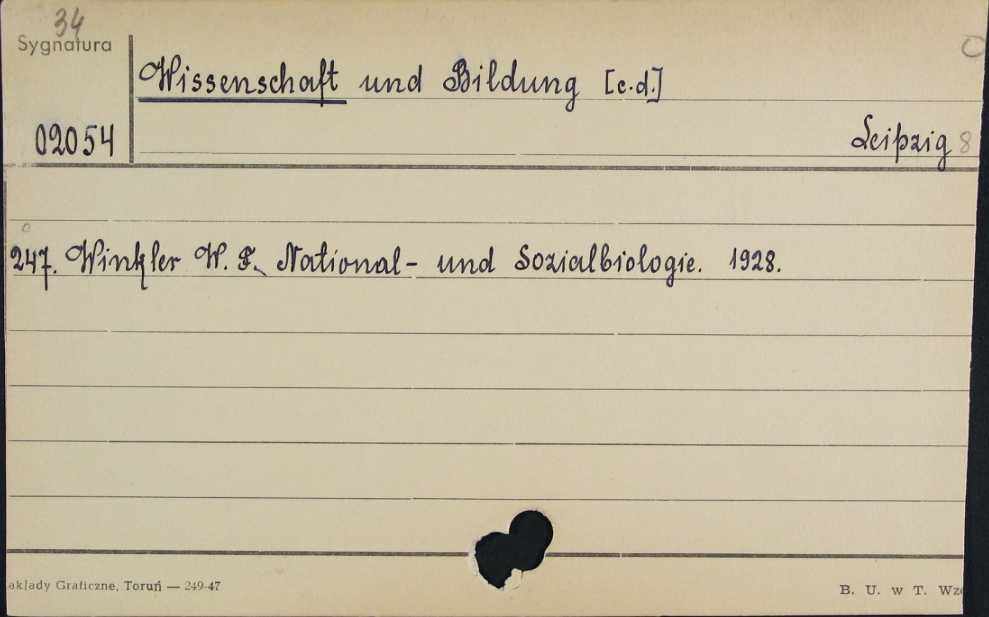 34
Sygnatura
Wissenschaft und Bildung [c.d.]
02054
Leipzig 8
247. Winkler W. F. National- und Sozialbiologie. 1928.
akłady Graficzne, Toruń — 249-47
B. U. w T. Wz